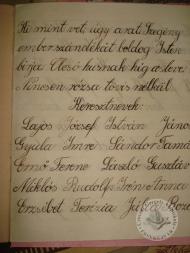 Ki mint vet, úgy arat. Szegény
ember szándékát boldog Isten
bírja. Olcsó husnak híg a leve.
Nincsen rózsa tövis nélkül.
Keresztnevek:
Lajos József István János
Gyula Imre Sándor Tamá
Ernő Ferenc László Gusztáv
Miklós Rudolf Irén Anna
Erzsébet Terézia Júl